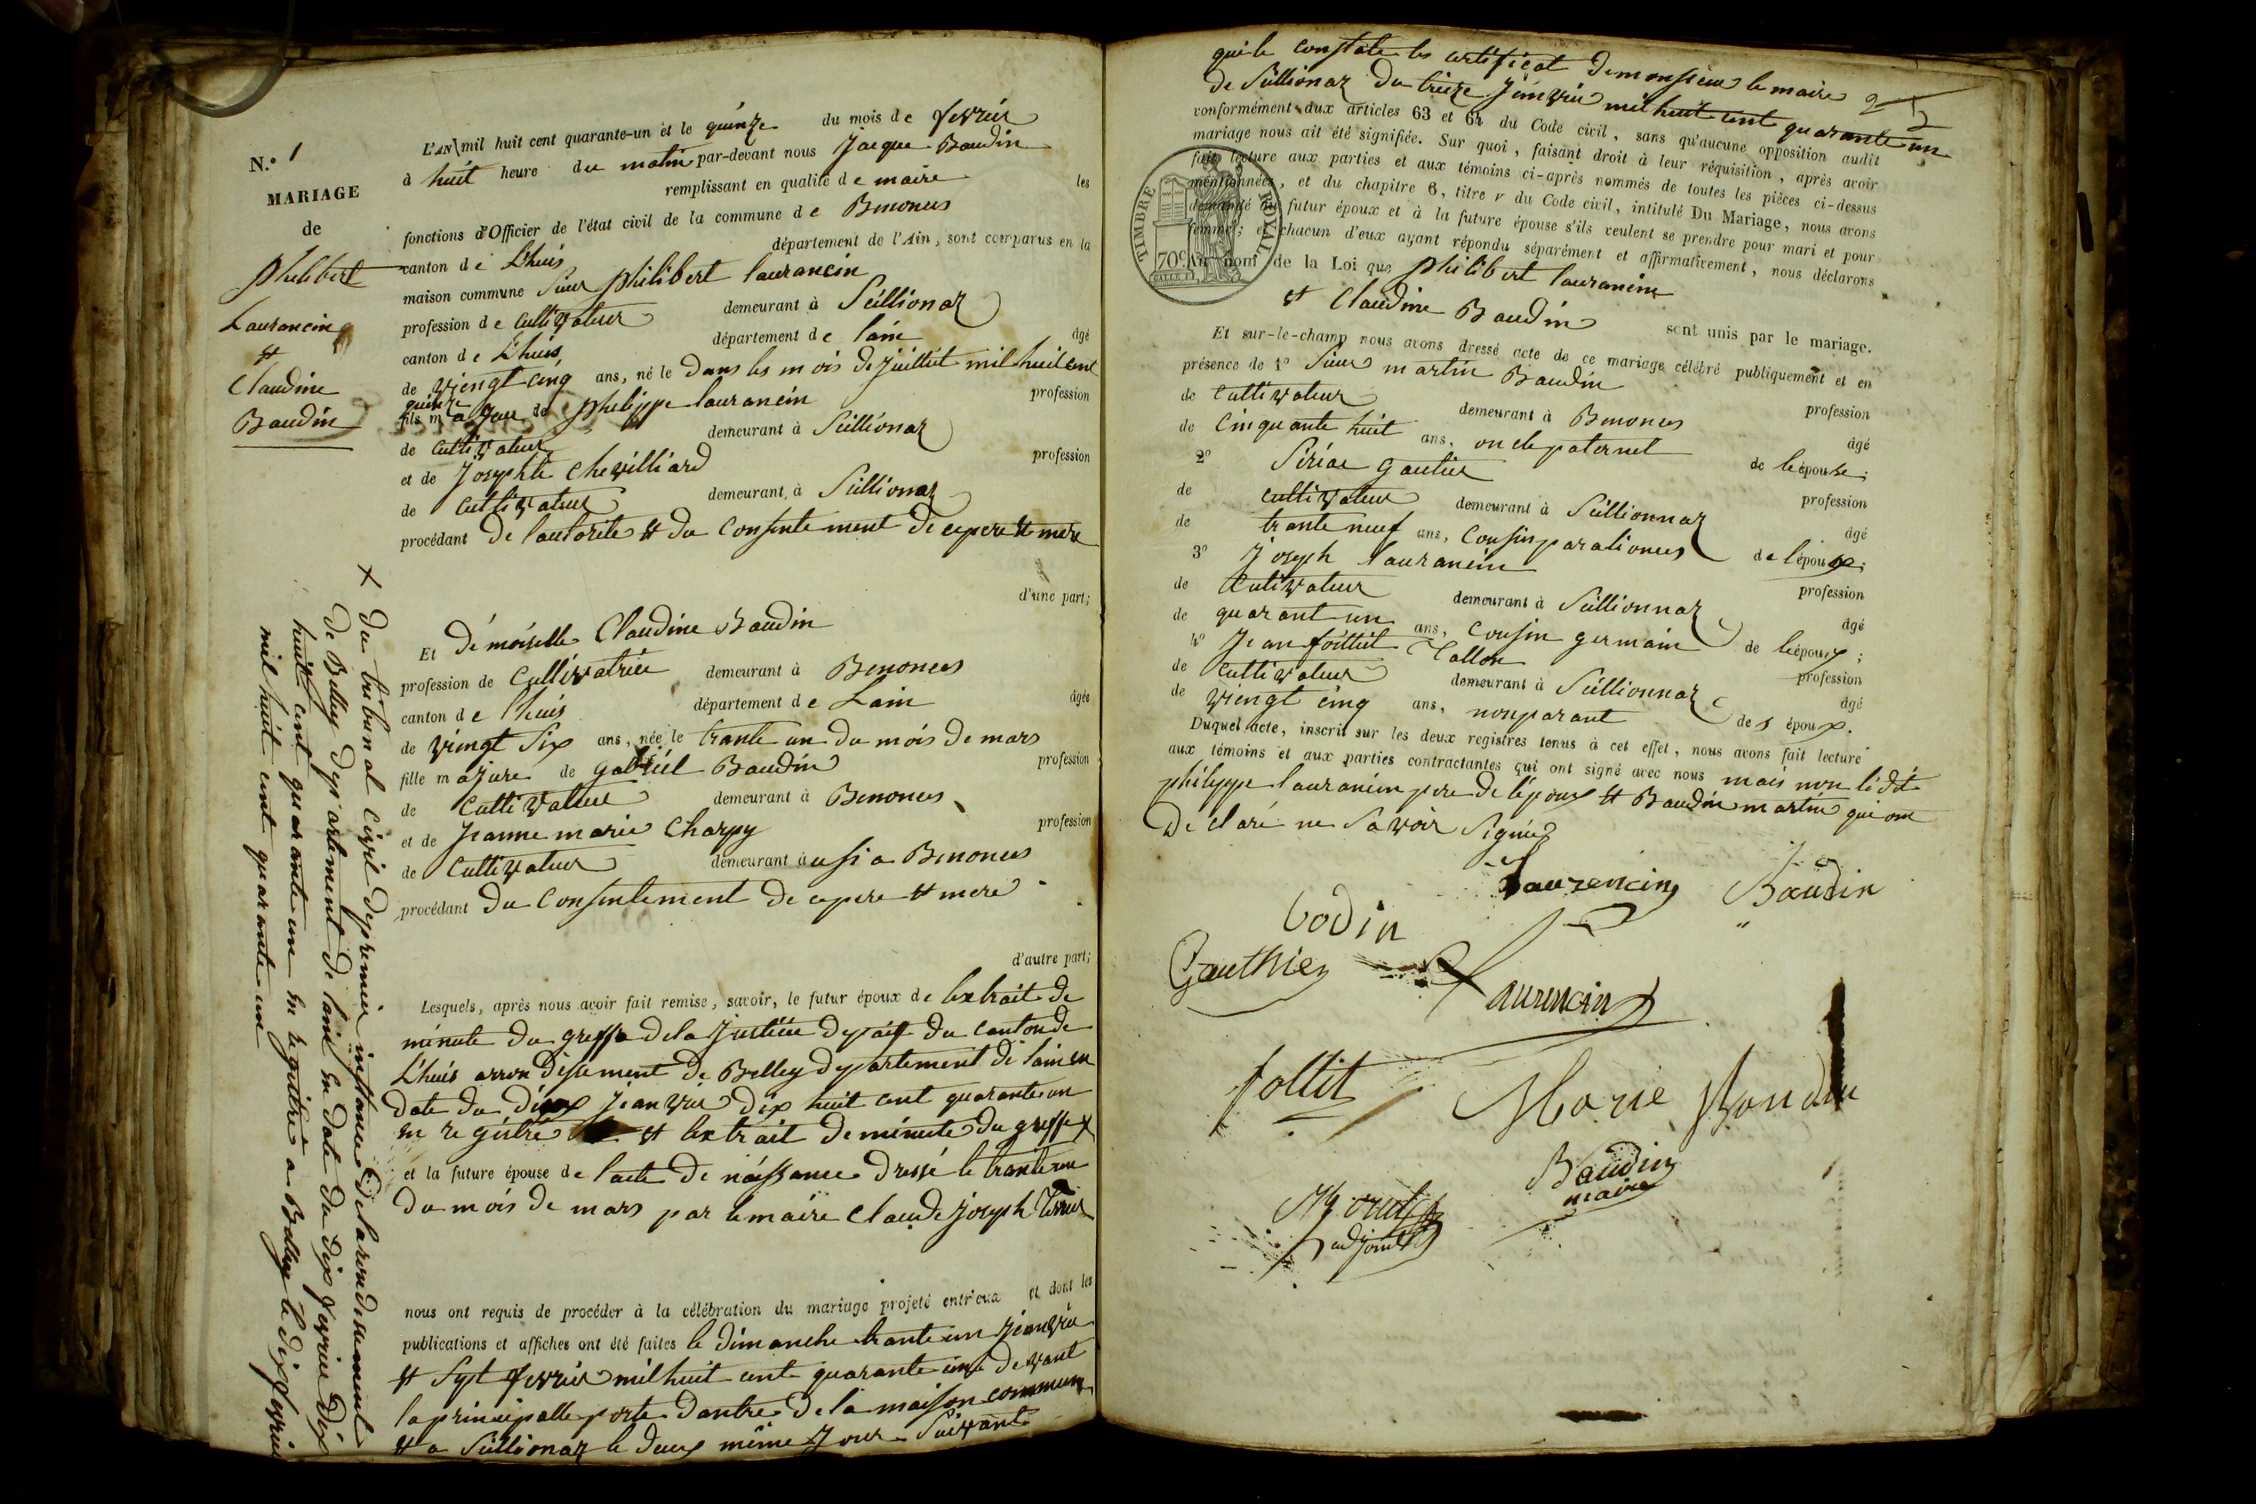 N.° 1
MARIAGE
de
philibert
Laurancin
et
Claudine
Baudin
L'AN mil huit cent quarante-un et le quinze du mois de fevrier
à huit heure du matin par-devant nous Jacque Baudin
remplissant en qualité de maire les
fonctions d'Officier de l'état civil de la commune de Benonces
canton de Lhuis département de l'Ain, sont comparus en la
maison commune Sieur philibert laurancin
profession de cultivateur demeurant à Seillionaz
canton de Lhuis département de lain âgé
de viengt cinq ans, né le dans les mois de juillet mil huit cent
quinze
fils majeur de philippe laurancin profession
de cultivateur demeurant à Seillionaz
et de Josephte chevilliard profession
de cultivateur demeurant à Seillionaz
procédant de lautorite et du consentement de cepere et mere
d'une part;
Et démoiselle Claudine Baudin
profession de cullivatrice demeurant à Benonces
canton de lhuis département de Lain âgée
de viengt six ans, née le trante un du mois de mars
fille majure de gabriel Baudin profession
de cultivateur demeurant à Benonces
et de Jeanne marie Charpy profession
de cultivateur demeurant à ausi a Benonces
procédant du consentement de cepere et mere
d'autre part;
Lesquels, après nous avoir fait remise, savoir, le futur époux de lextrait de
minute du greffe de la justice depaix du canton de
Lhuis arrondisement de Belley departement de lain en
date du dix jeanvier dix huit cent quarante un
en regitré et lextrait de minute du greffe X
et la future épouse de lacte de naissance dressé le trante un
du mois de mars par lemaire claude joseph
nous ont requis de procéder à la célébration du mariage projeté entr'eux et dont les
publications et affiches ont été faites le dimanche trante un jeanvier
et sept fevrier mil huit cent quarante un devant
la principalle porte dantre de la maison commune
et a Seillionaz le deux même jour Suivant
X du tribunal civil depremier instance de larondisement
de Belley departement de lain en date du dix fevrier dix
huit cent quarante un en regitré a Belley le dix fevrier
mil huit cent quarante un
qui le constate les certificat de monsieur le maire
de Seillionaz du treize jeanvier mil huit cent quarante un
conformément aux articles 63 et 64 du Code civil, sans qu'aucune opposition audit
mariage nous ait été signifiée. Sur quoi, faisant droit à leur réquisition, après avoir
fait lecture aux parties et aux témoins ci-après nommés de toutes les pièces ci-dessus
mentionnées, et du chapitre 6, titre v du Code civil, intitulé Du Mariage, nous avons
demandé au futur époux et à la future épouse s'ils veulent se prendre pour mari et pour
femme; et chacun d'eux ayant répondu séparément et affirmativement, nous déclarons
Au nom de la Loi que philibert laurancin
et Claudine Baudin sont unis par le mariage.
TIMBRE ROYAL
70c
Et sur-le-champ nous avons dressé acte de ce mariage célébré publiquement et en
présence de 1° Sieur martin Baudin profession
de cultivateur demeurant à Benonces âgé
de cinquante huit ans, oncle paternel de lépouse;
2° Siriac gautier profession
de cultivateur demeurant à Seillionnaz âgé
de trante neuf ans, cousin de lépoux;
3° joseph laurancin profession
de cutivateur demeurant à Seillionnaz âgé
de quarant un ans, cousin germain de lépoux;
4° Jean foillit Tallon profession
de cultivateur demeurant à Seillionnaz âgé
de viengt cinq ans, non parant des époux.
Duquel acte, inscrit sur les deux registres tenus à cet effet, nous avons fait lecture
aux témoins et aux parties contractantes qui ont signé avec nous mais non ledit
philippe laurancin pere de lépoux et Baudin martin qui on
déclaré ne savoir signié
Laurencin Baudin
Godin
Gauthier
Laurencin
follit
Marie Baudin
Baudin
maire
adjoint